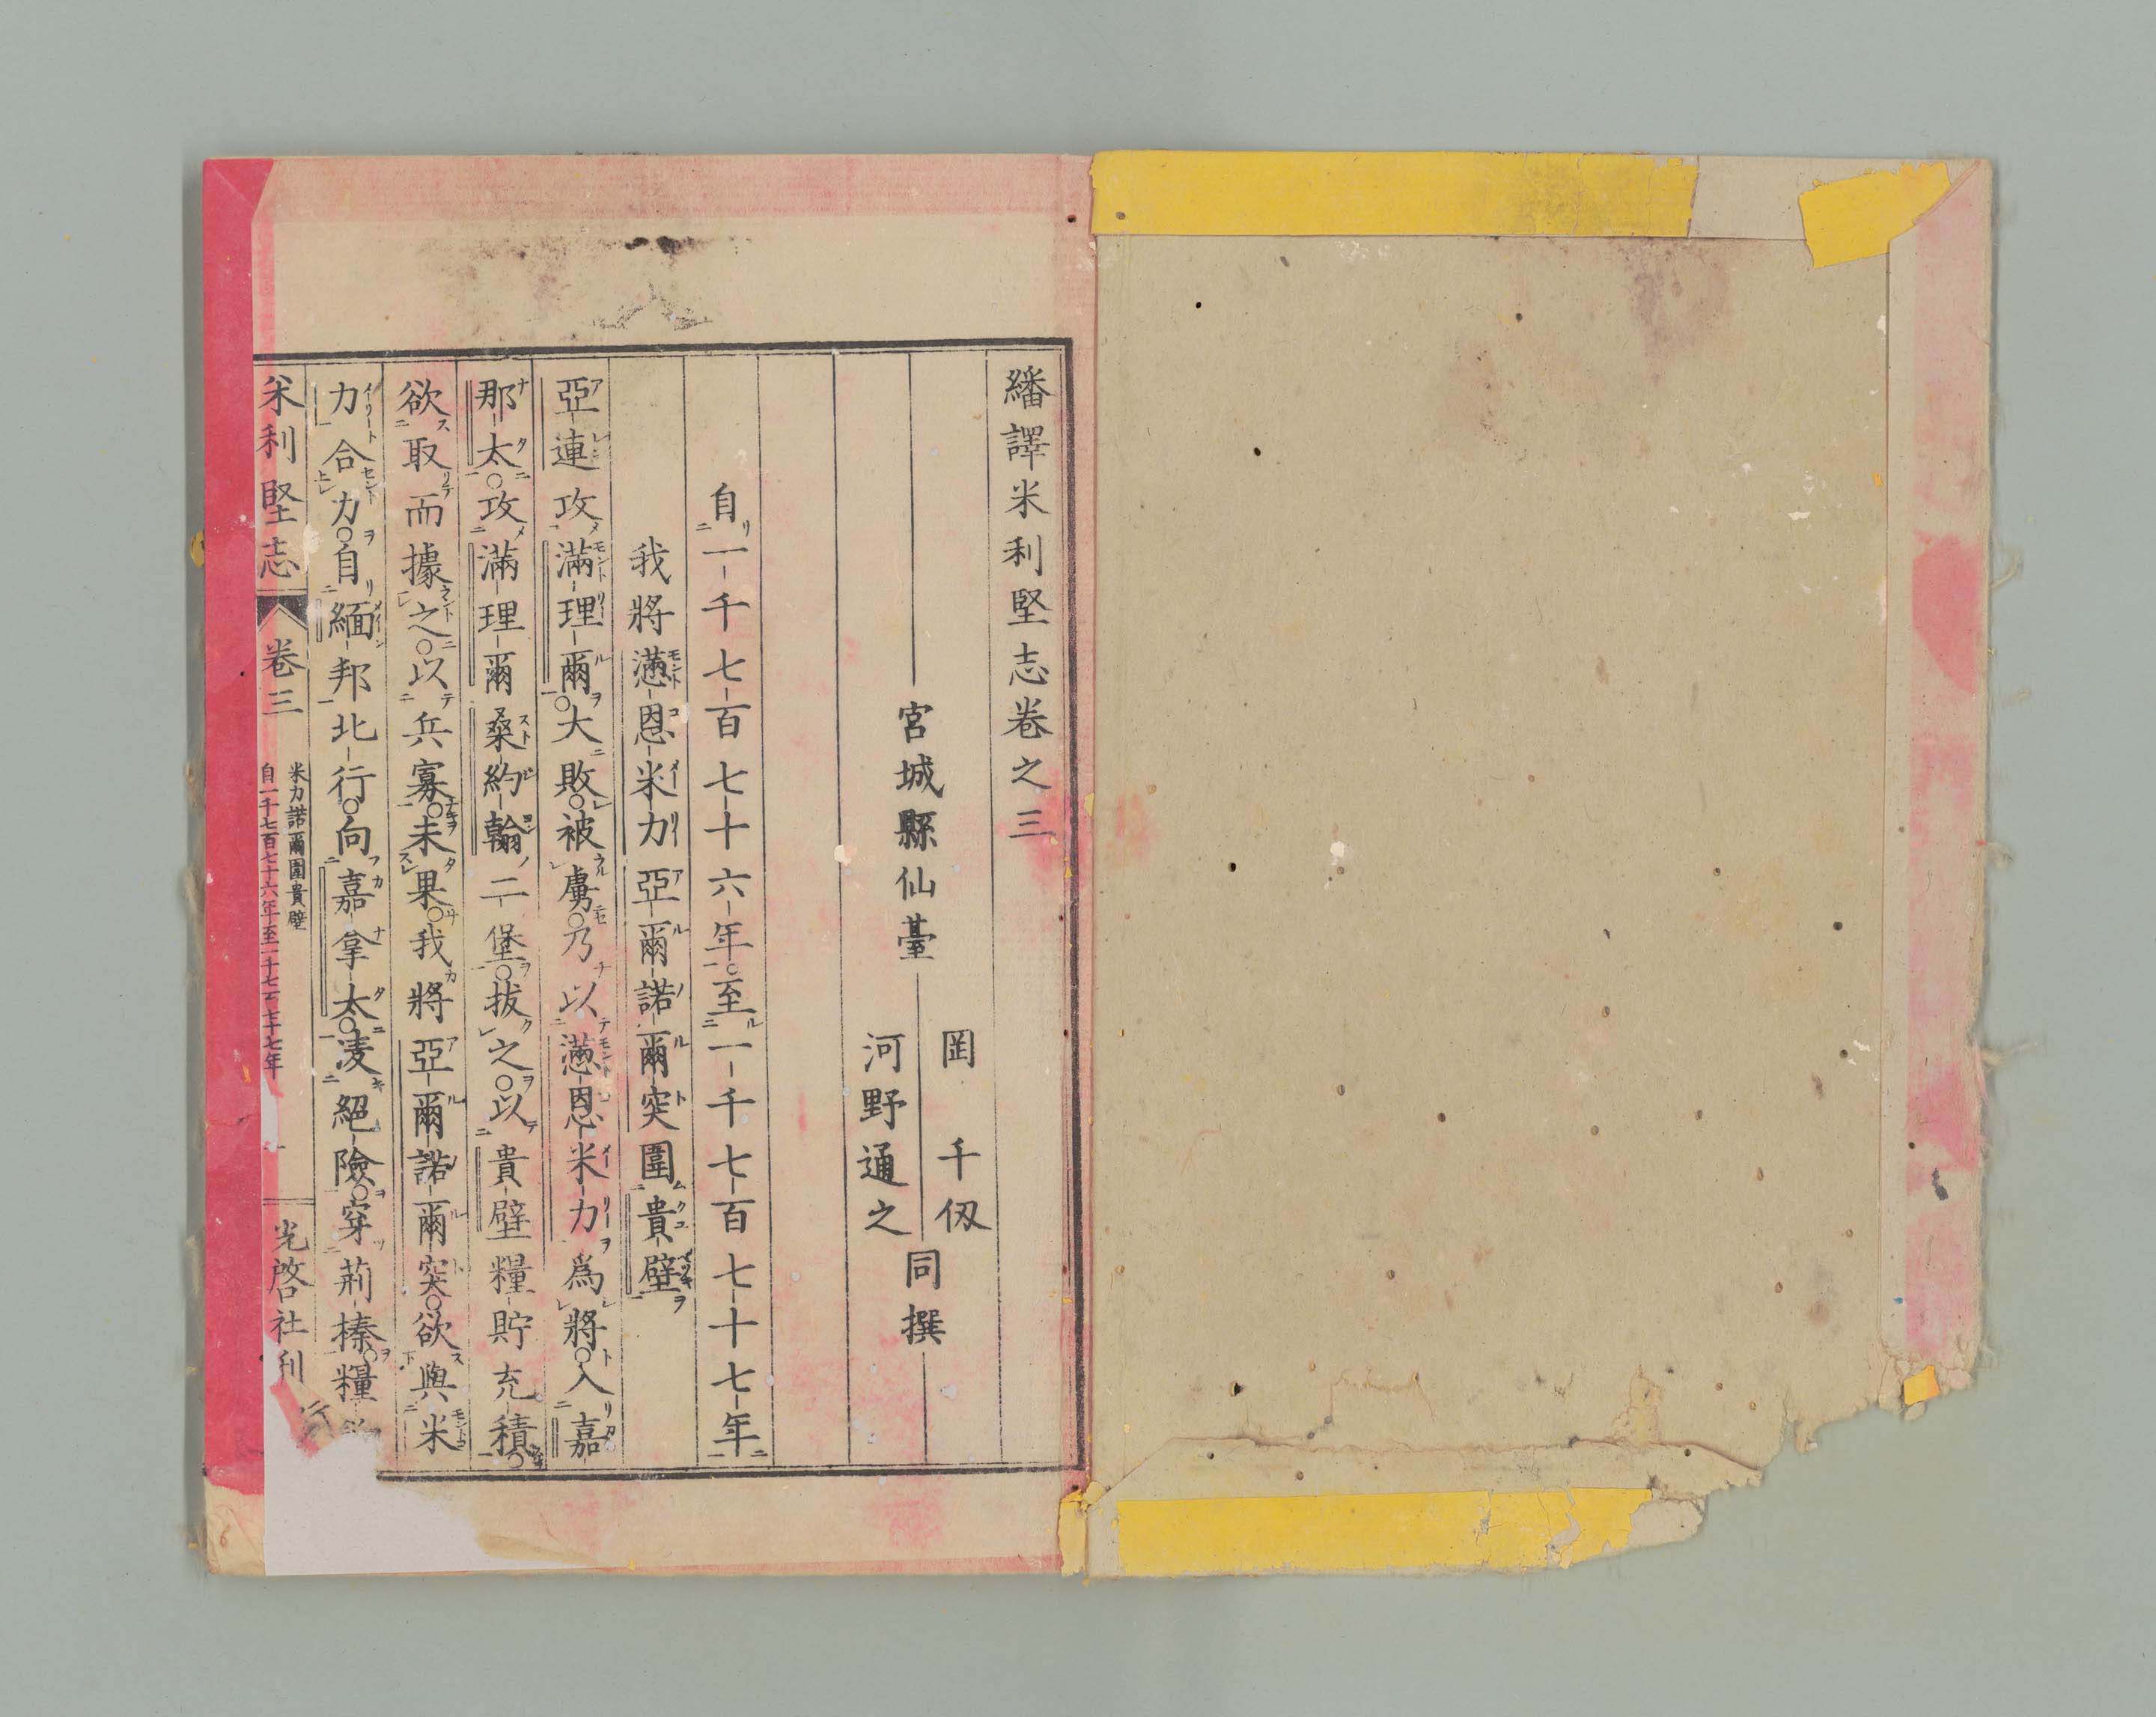 繙譯米利堅志卷之三
宮城縣仙臺
岡千仭
河野通之
同撰
自一千七百七十六年○至一千七百七十七年
我將懣恩米力亞爾諾爾突圍貴壁
亞連攻滿理爾○大敗○被虜○乃以懣恩米力爲將○入嘉
那太○攻滿理爾桑約翰二堡○拔之○以貴壁糧貯充積○
欲取而據之○以兵寡○未果○我將亞爾諾爾突○欲與米
力合力○自緬邦北行○向嘉拿太○凌絕險○穿荊榛○糧
米利堅志
卷三
米力諾爾圍貴壁
自一千七百七十六年至一千七百七十七年
一
光啓社刊